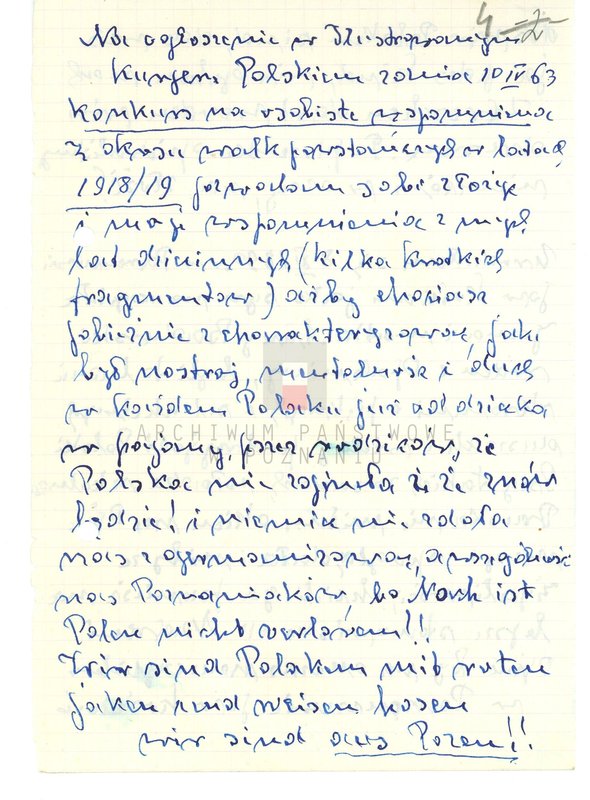 4 2
Na ogłoszenie w Ilustrowanym
Kurjerze Polskim z dnia 10 IV 63
konkurs na osobiste wspomnienia
z okresu walk powstańczych w latach
1918/19 pozwalam sobie złożyć
i moje wspomnienia z mych
lat dziecinnych (kilka krótkich
fragmentów) ażby chociaż
pobieżnie scharakteryzować, jaki
był nastrój, mentalność i duch
w każdem Polaku już od dziecka
w pojony, przez rodziców, że
Polska nie zginęła i że znów
będzie! i niemiec nie zdoła
nas zgermanizować, a szczególnie
nas Poznaniaków, bo, Noch ist
Polen nicht verloren!!
Wir sind Polaken mit roten
jaken und weisen hosen
wir sind aus Posen!!
ARCHIWUM PAŃSTWOWE
W POZNANIU